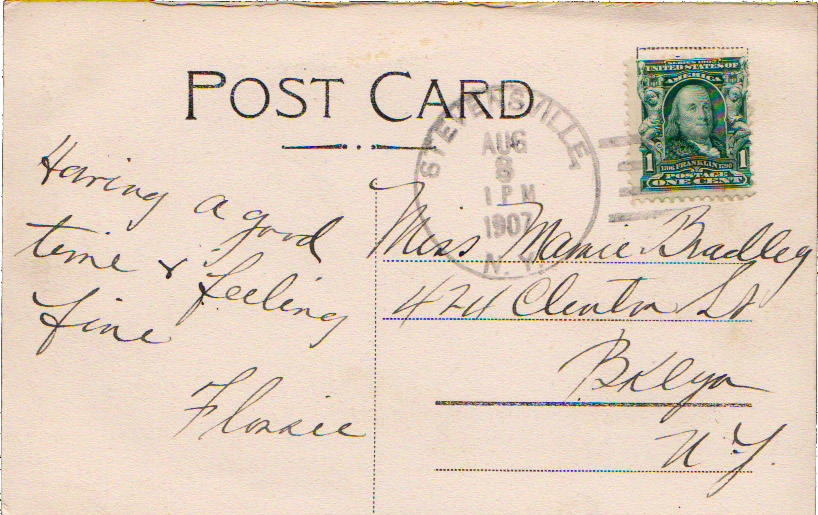 POST CARD
STEVENSVILLE.
AUG
8
1 PM
1907
N.Y.
SERIES 1902
UNITED STATES OF
AMERICA
1 1
1706 FRANKLIN 1790
POSTAGE
ONE CENT
Having a good
time & feeling
fine
Flossie
Miss. Mamie Bradley
424 Clinton St
Bklyn
N.Y.